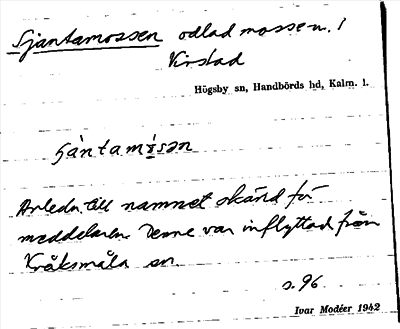 Sjäntamossen odlad mosse n. /
Virstad
Högsby sn, Handbörds hd, Kalm. l.
Anledn. till namnet okänd för
meddelaren. Denne var inflyttad från
Kråksmåla sn.
s. 96
Ivar Modéer 1942